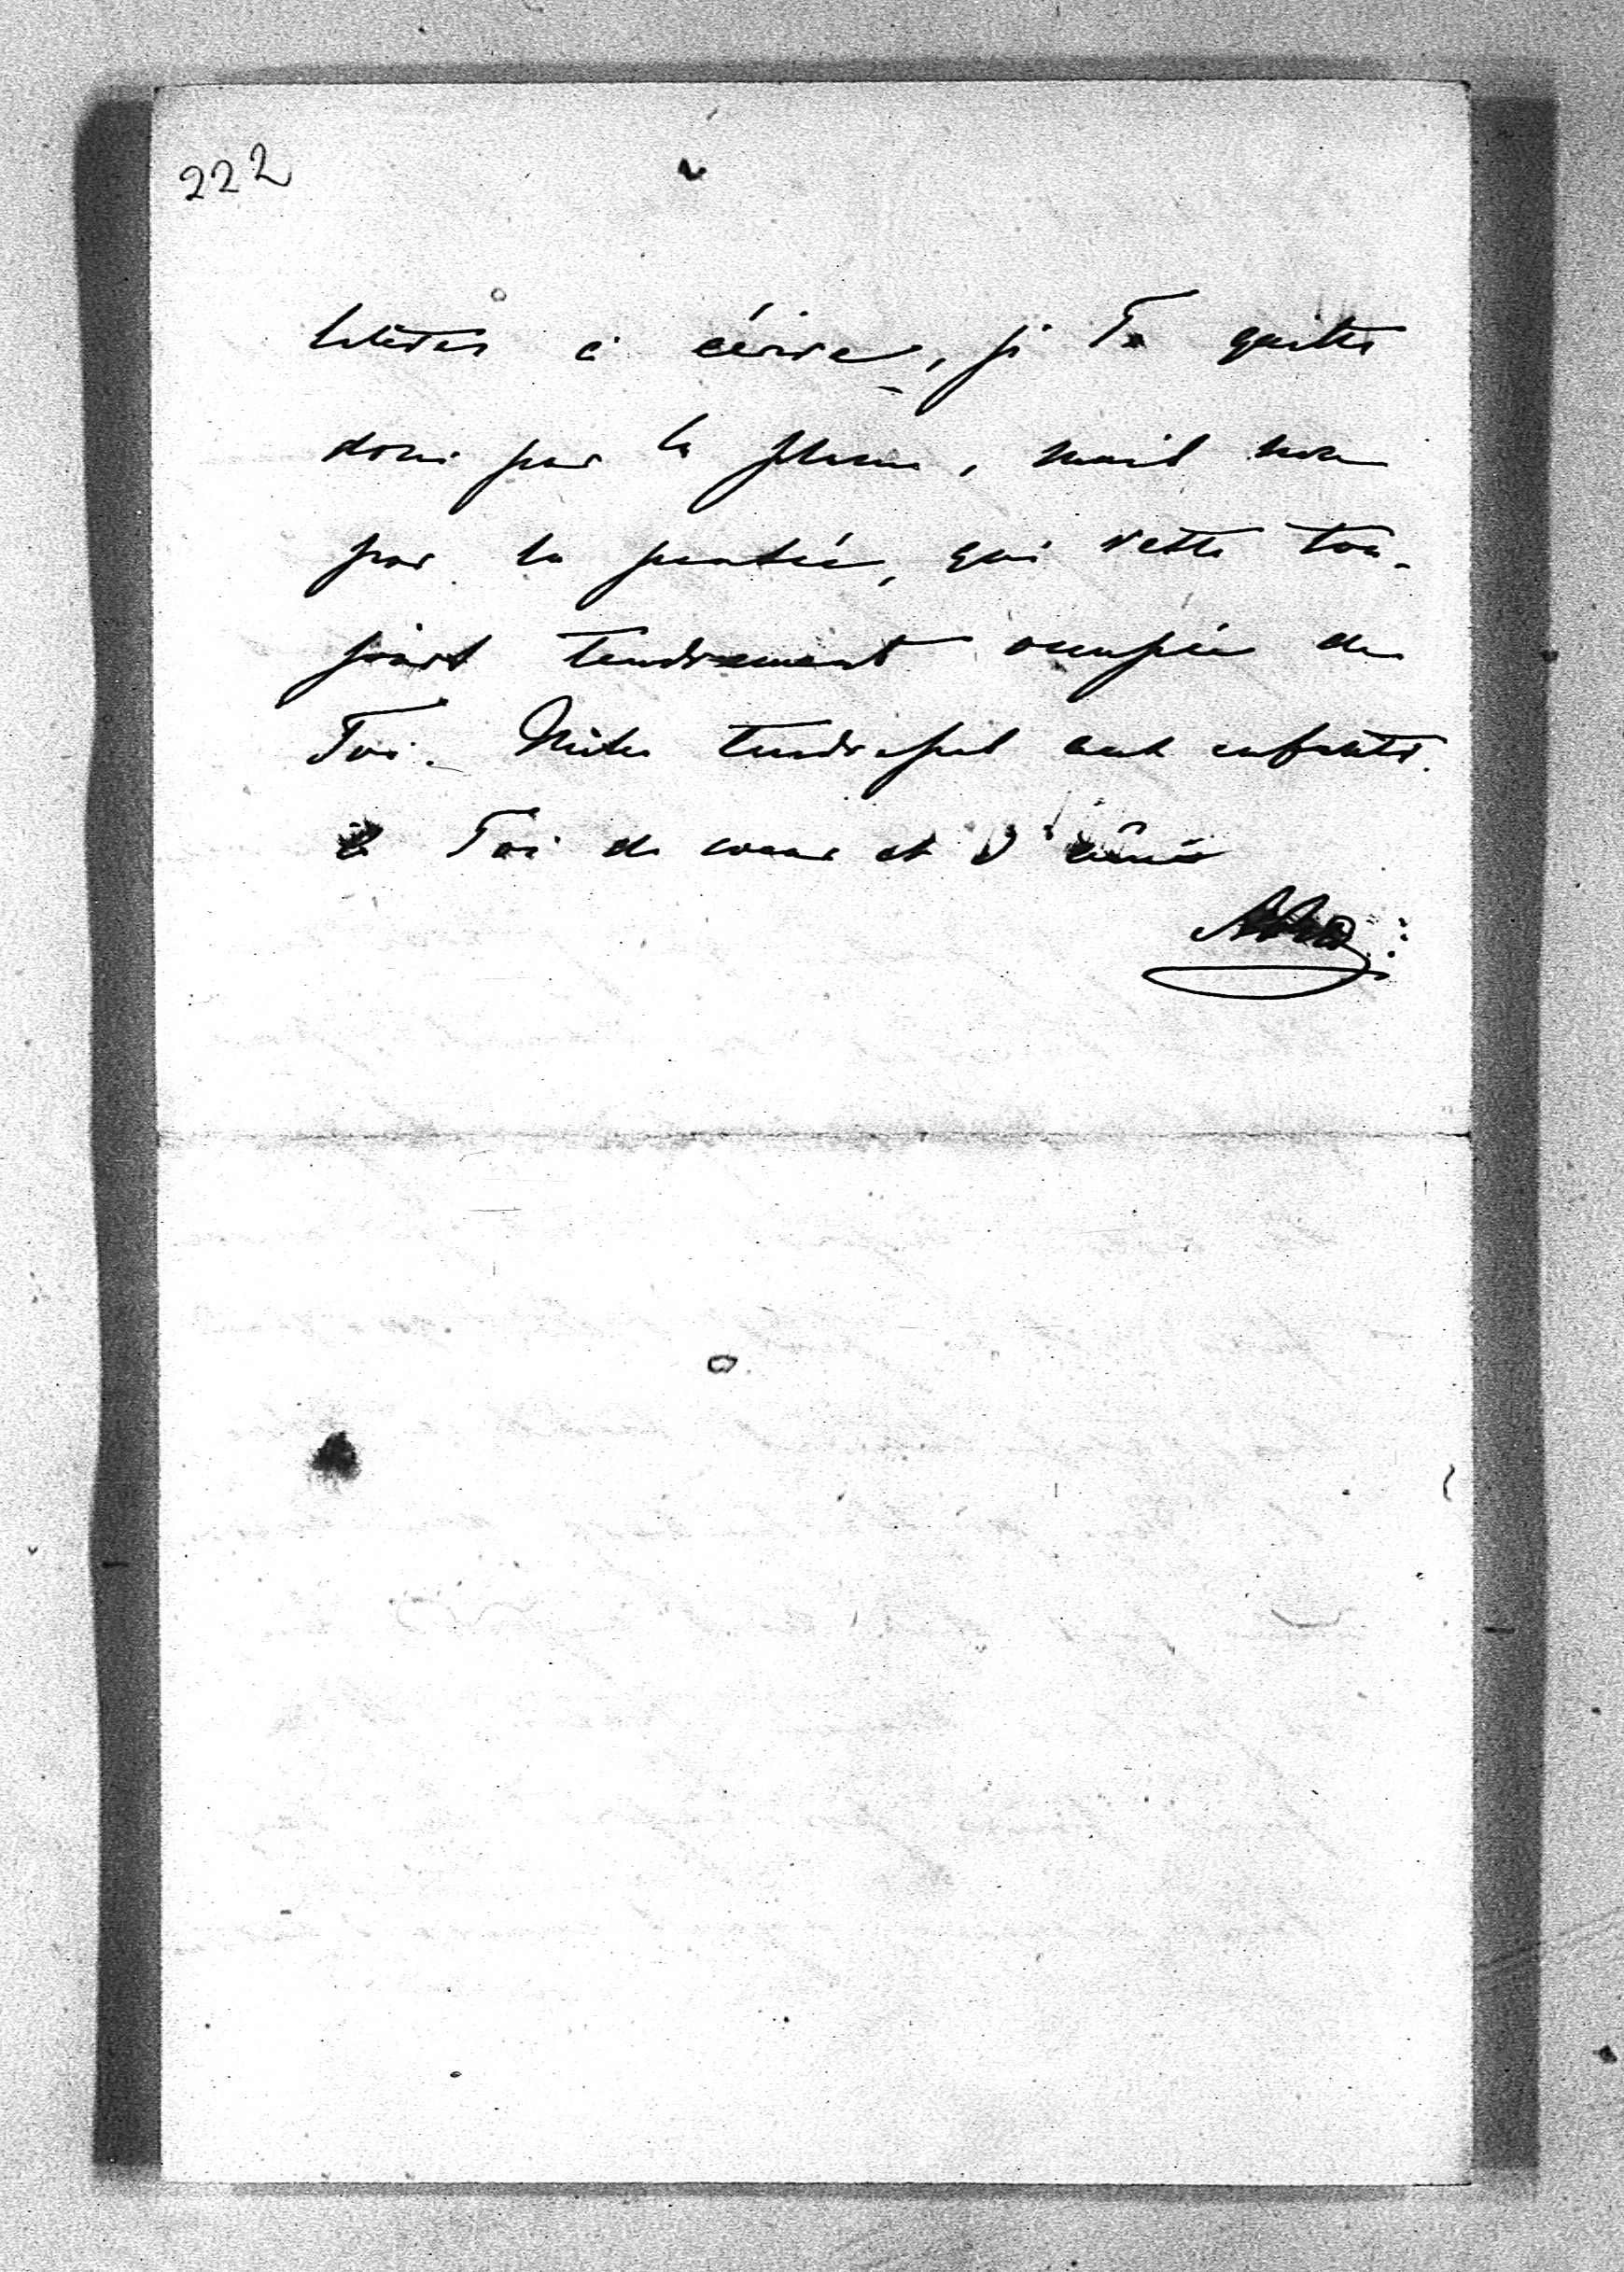 222
lettres à écrire, je Te quitte
donc par la plume, mais non
par la pensée, qui reste tou-
jours tendrement occupée de
Toi. Milles tendresses aux enfants.
à Toi de coeur et d'âme